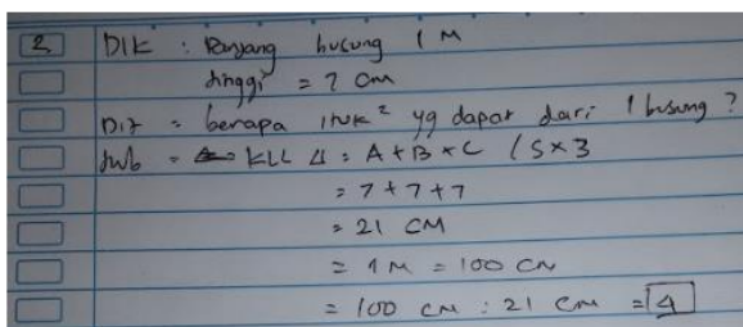 2 DIK : Panjang busung 1 M
tinggi = 7 cm
Dit = berapa yg dapat dari 1 busung ?
Jwb = KLL Δ = A + B + C (S x 3
= 7 + 7 + 7
= 21 CM
= 1 M = 100 CM
= 100 cm : 21 cm = 4